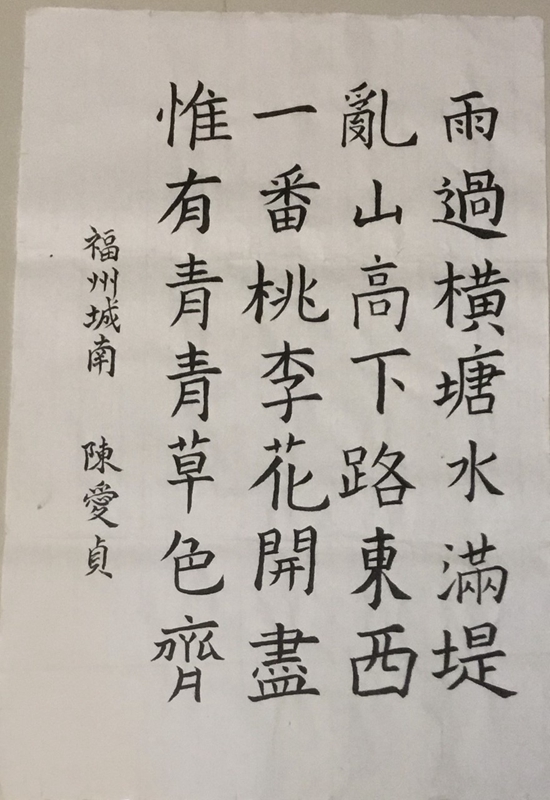 雨過橫塘水滿堤
亂山高下路東西
一番桃李花開盡
惟有青青草色齊
福州城南 陳愛貞